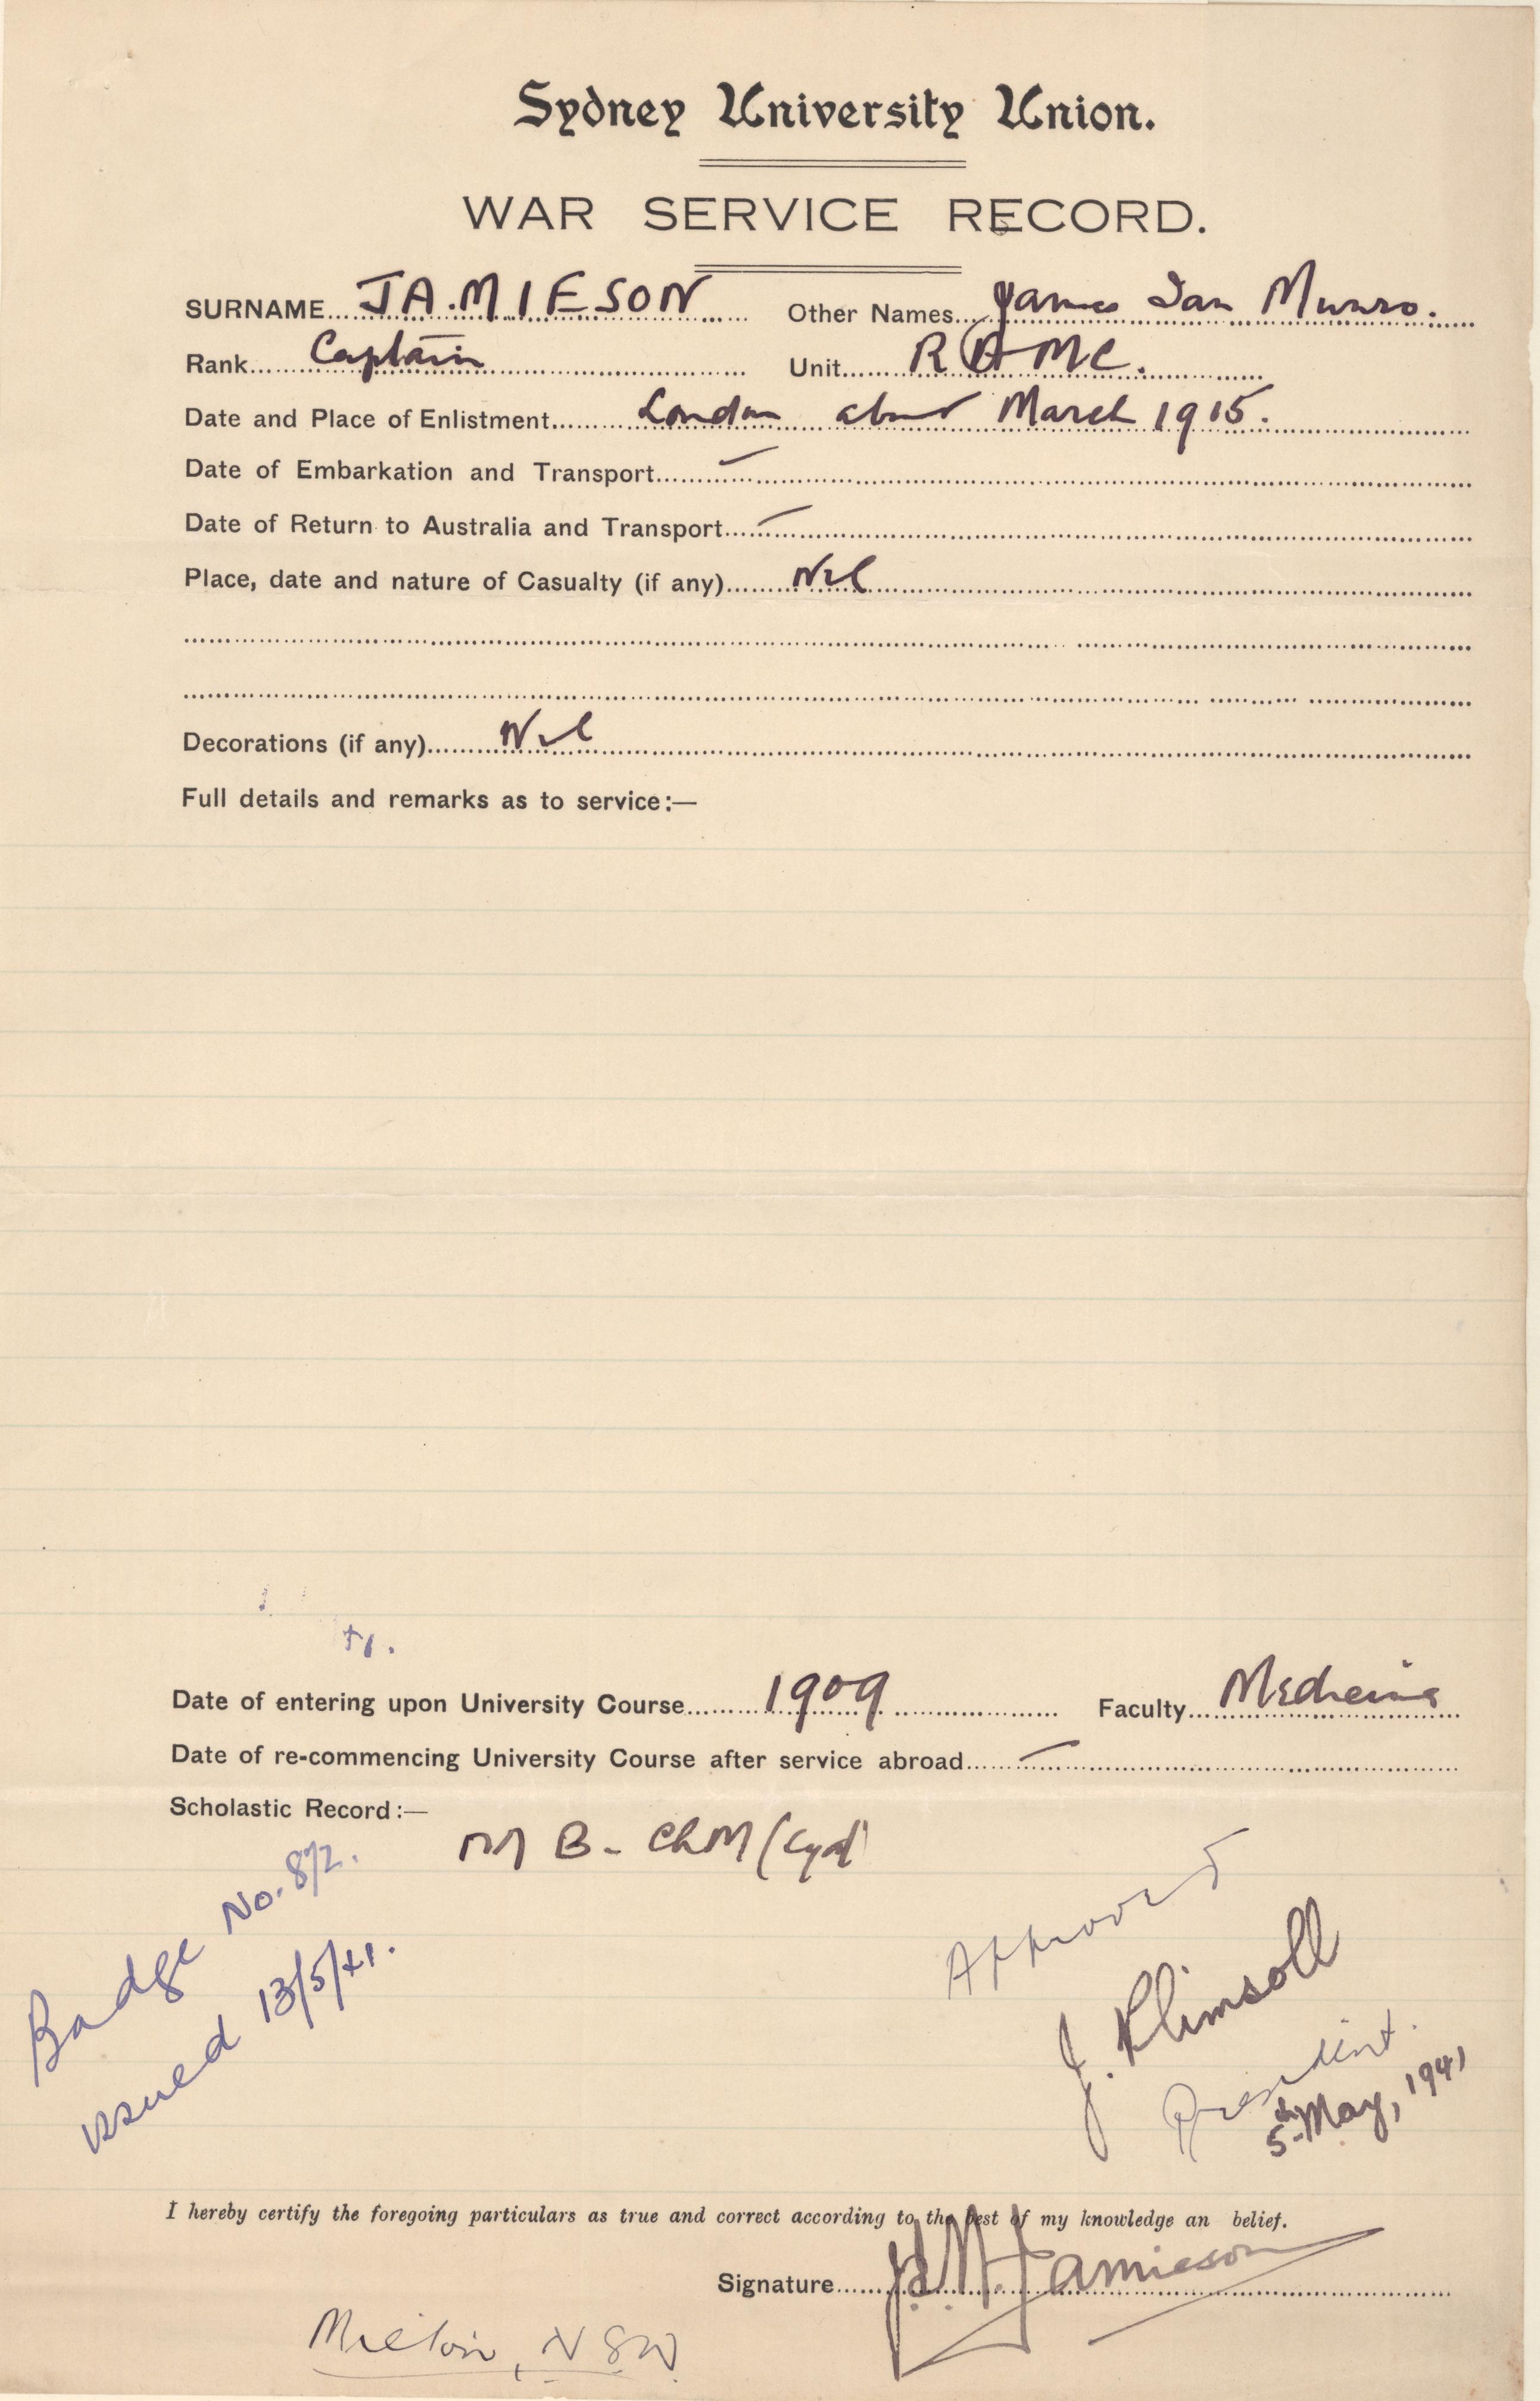 Sydney University Union.
WAR SERVICE RECORD.
SURNAME JAMIESON Other Names James Ian Munro.
Rank Captain Unit RAMC.
Date and Place of Enlistment London about March 1915.
Date of Embarkation and Transport —
Date of Return to Australia and Transport —
Place, date and nature of Casualty (if any) Nil
Decorations (if any) Nil
Full details and remarks as to service:—
Date of entering upon University Course 1909 Faculty Medicine
Date of re-commencing University Course after service abroad —
Scholastic Record:—
M B - ChM (Syd)
Badge No. 872.
issued 13/5/41.
Approved
J. Plimsoll
President.
5th May, 1941
I hereby certify the foregoing particulars as true and correct according to the best of my knowledge an belief.
Signature J.I.M. Jamieson
Milton, NSW